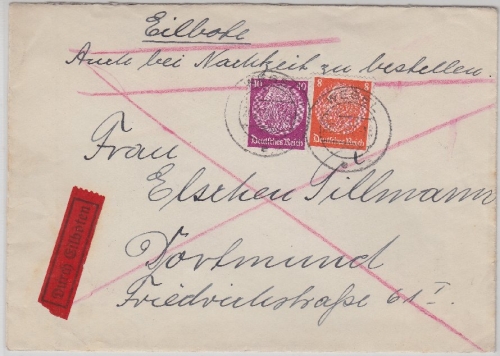 Eilbote
Auch bei Nachtzeit zu bestellen.
40 40
Deutsches Reich
8 8
Deutsches Reich
Frau
Elschen Tillmann
Dortmund
Friedrichstraße 61 I.
Durch Eilboten